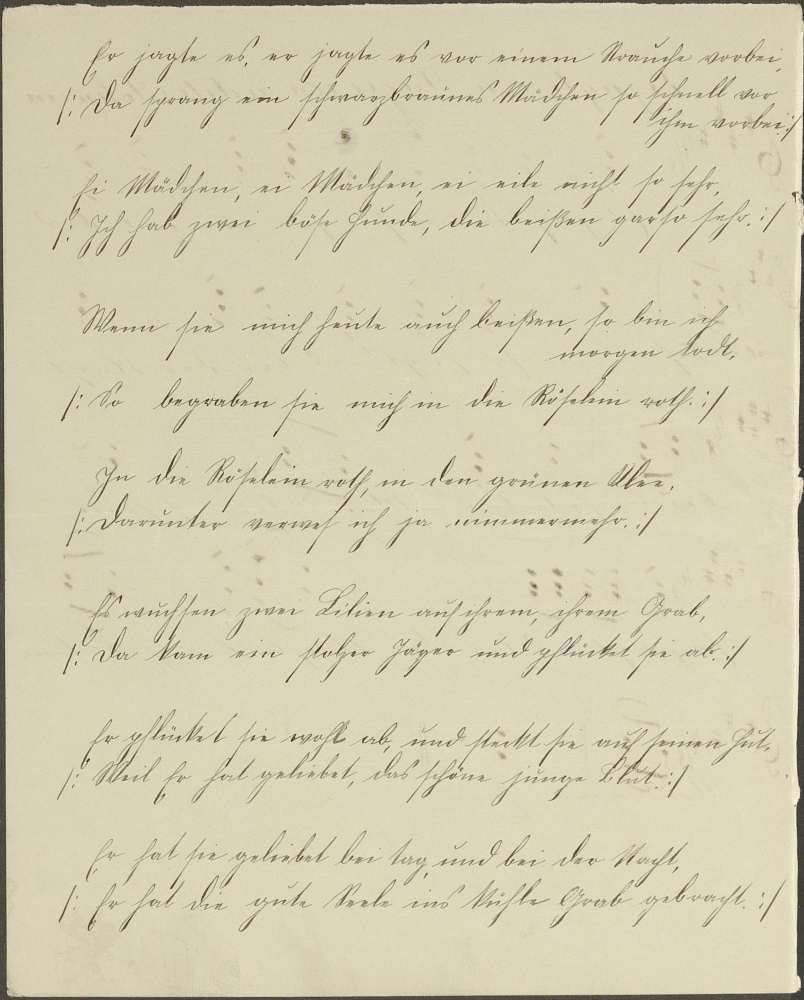 Er jagte es, er jagte es vor einem Strauche vorbei,
/: Da sprang ein schwarzbraunes Mädchen so schnell vor
ihm vorbei :/
Ei Mädchen, ei Mädchen, ei eile nicht so sehr,
/: Ich hab zwei böse Hunde, die beißen gar so sehr. :/
Wenn sie mich heute auch beißen, so bin ich
morgen todt,
/: So begraben sie mich in die Röselein roth. :/
In die Röselein roth, in den grünen Klee,
/: Darunter verwes ich ja nimmermehr. :/
Es wuchsen zwei Lilien auf ihrem, ihrem Grab,
/: Da kam ein stolzer Jäger und pflücket sie ab. :/
Er pflücket sie wohl ab, und steckt sie auf seinen Hut,
/: Weil Er hat geliebet, das schöne junge Blut. :/
Er hat sie geliebet bei tag, und bei der Nacht,
/: Er hat die gute Seele ins kühle Grab gebracht. :/